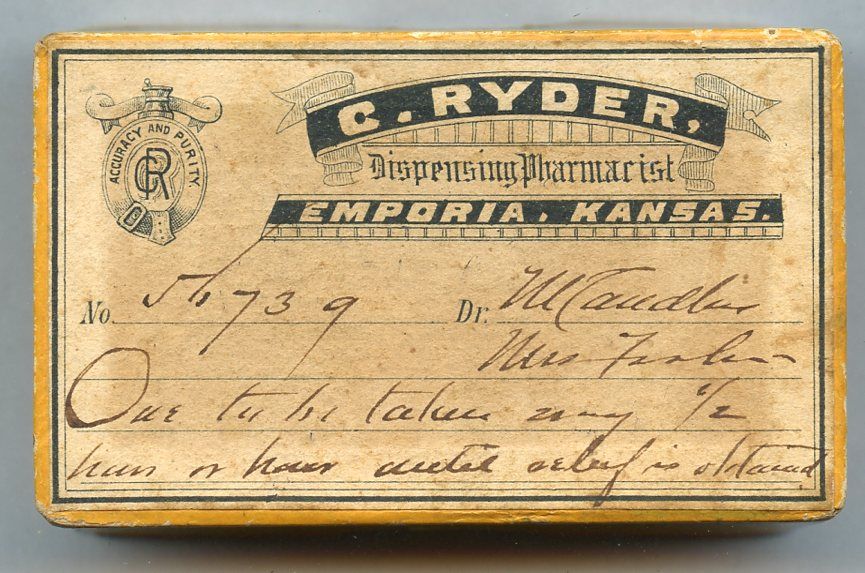 ACCURACY AND PURITY.
CR
C. RYDER,
Dispensing Pharmacist
EMPORIA, KANSAS.
No. 56739 Dr. McCandless
Mrs
One to be taken every 1/2
hour or hour until relief is obtained